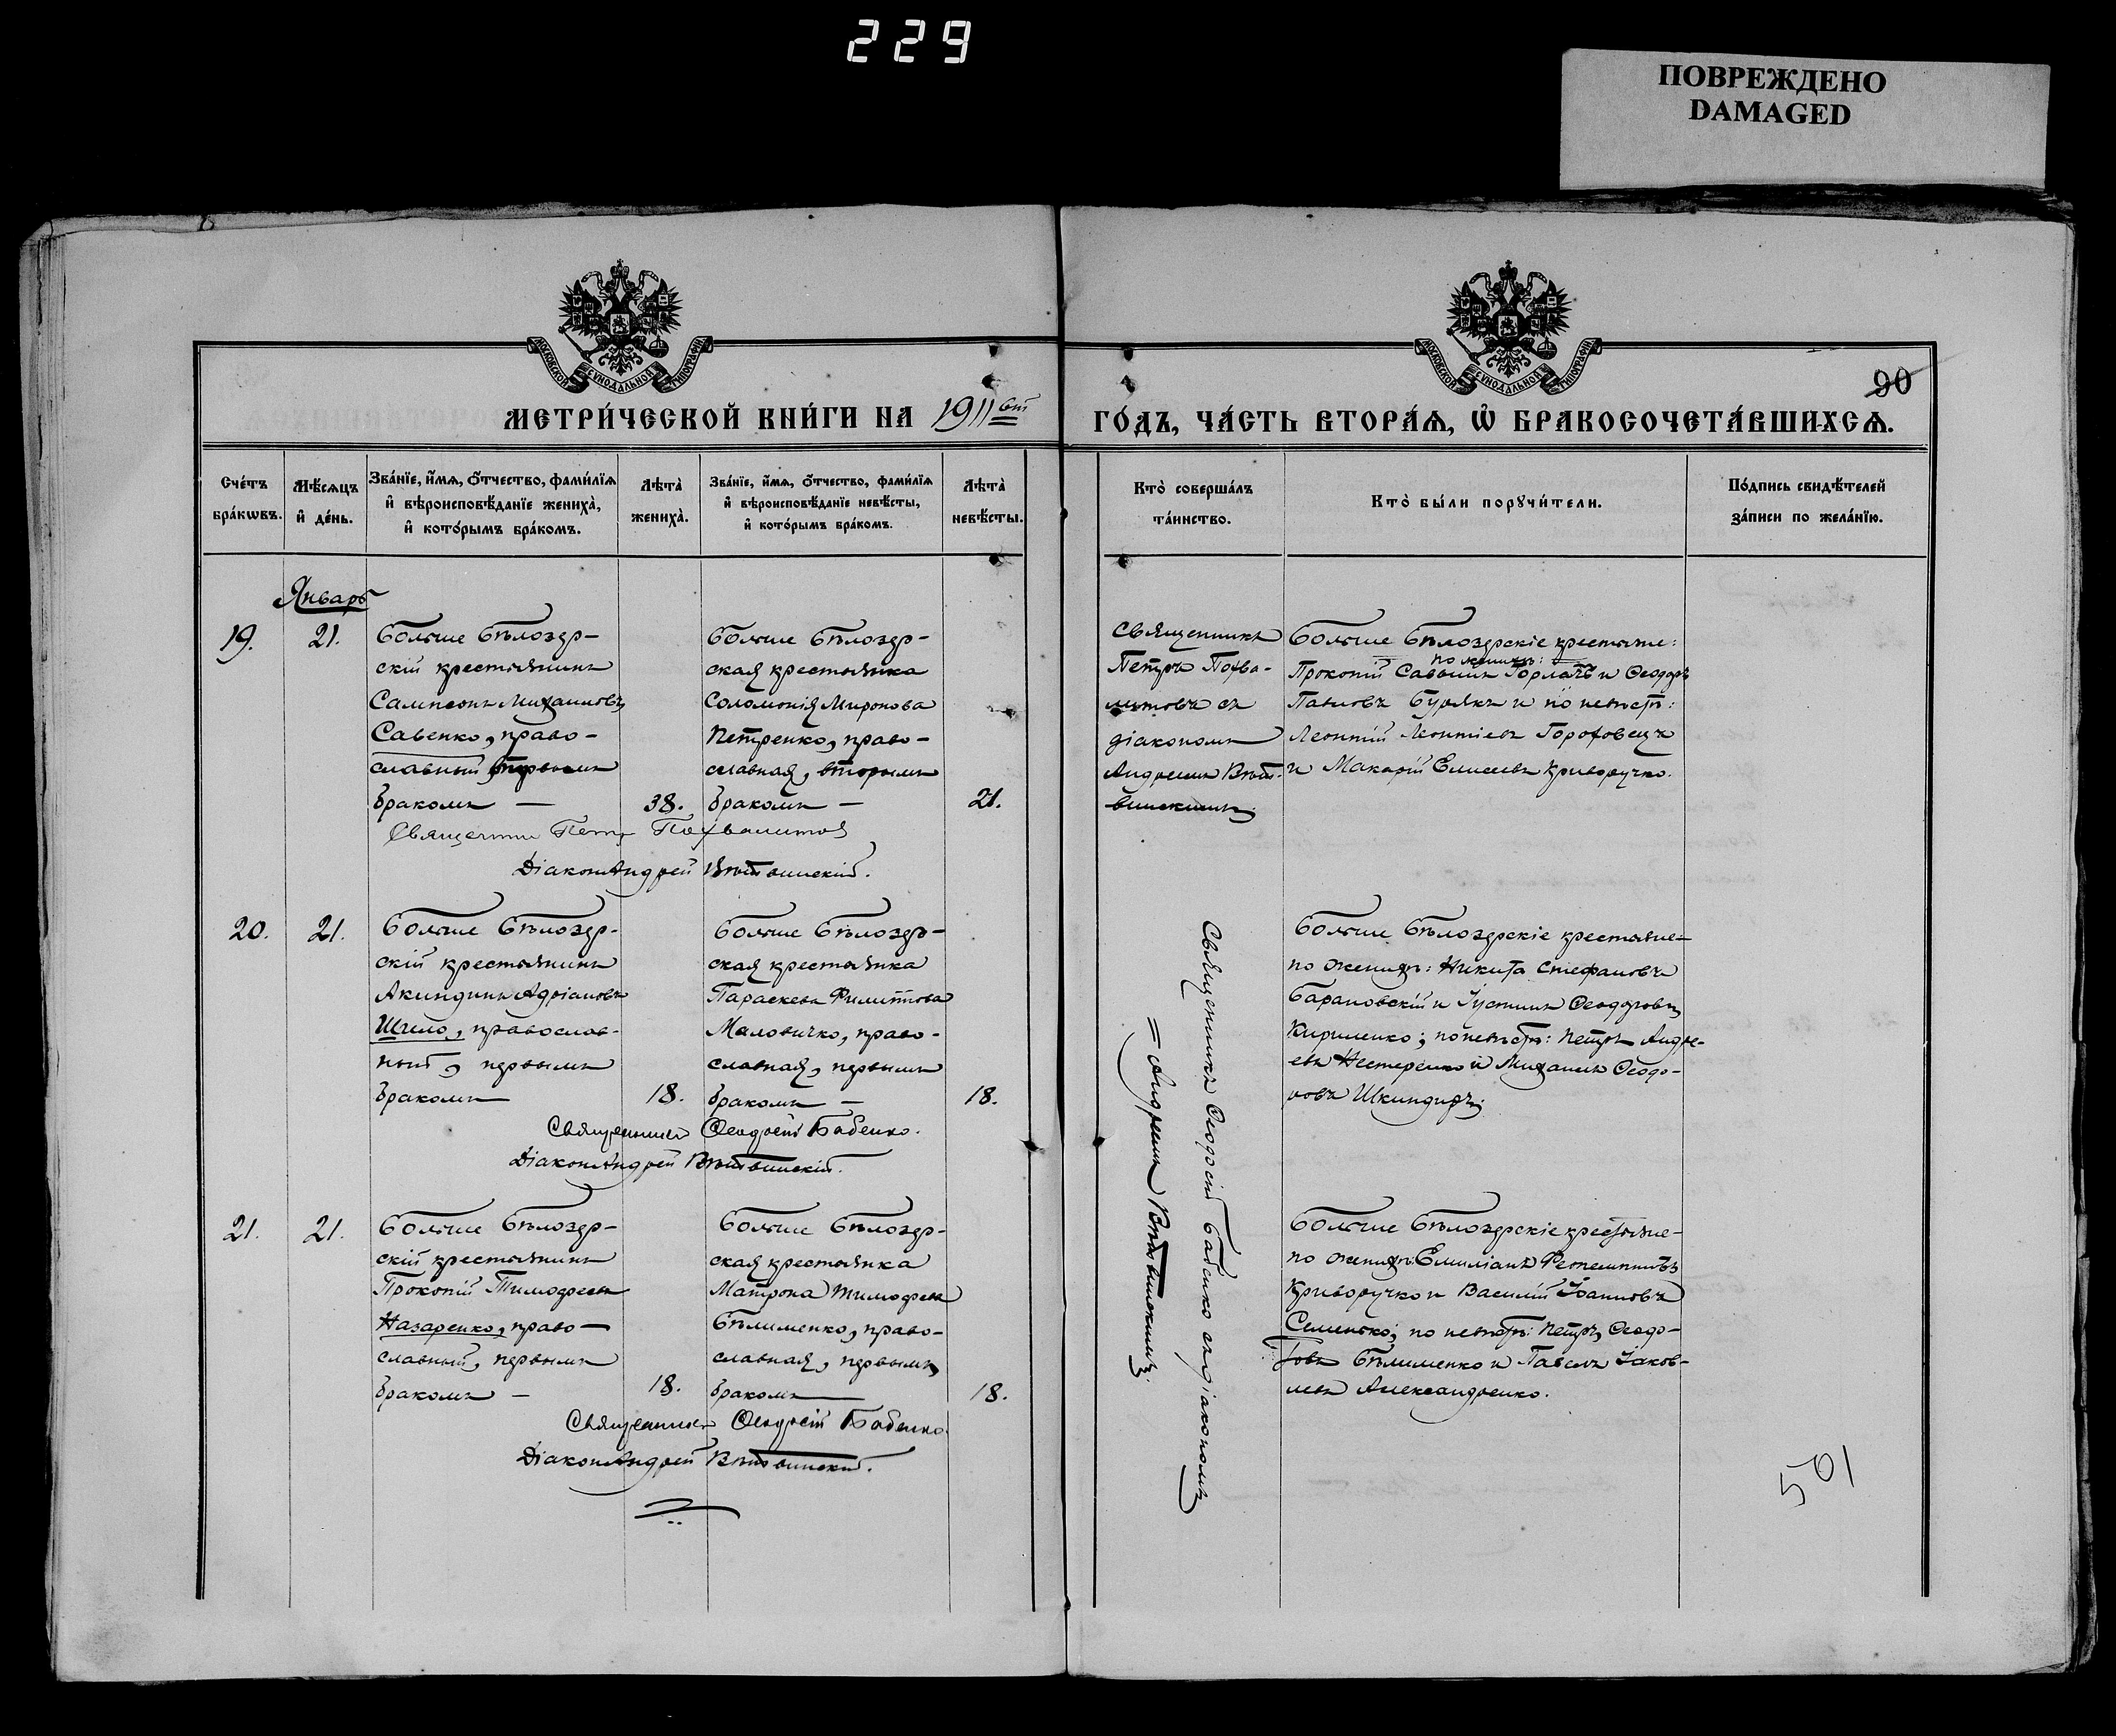 229
ПОВРЕЖДЕНО
DAMAGED
МОСКОВСКОЙ СѴНОДАЛЬНОЙ ТИПОГРАФІИ
МОСКОВСКОЙ СѴНОДАЛЬНОЙ ТИПОГРАФІИ
90
МЕТРИ́ЧЕСКОЙ КНИ́ГИ НА 1911
ГО́ДЪ, ЧА́СТЬ ВТОРА́Ѧ, Ѡ҆ БРАКОСОЧЕТА́ВШИХСѦ.
Сче́тъ бра́кѡвъ.
Мѣ́сѧцъ и҆ де́нь.
Зва́нїе, и҆́мѧ, ѻ҆́тчество, фами́лїѧ
и҆ вѣроисповѣ́данїе жениха̀,
и҆ кото́рымъ бра́комъ.
Лѣта̀ жениха̀.
Зва́нїе, и҆́мѧ, ѻ҆́тчество, фами́лїѧ
и҆ вѣроисповѣ́данїе невѣ́сты,
и҆ кото́рымъ бра́комъ.
Лѣта̀ невѣ́сты.
Кто̀ соверша́лъ та́инство.
Кто̀ бы́ли порꙋчи́тели.
По́дпись свидѣ́телей за́писи по жела́нїю.
Январь
19.
21.
Больше Бѣлозер-
скій крестьянинъ
Сампсонъ Михаиловъ
Савенко, право-
славный первымъ
бракомъ —
38.
Больше Бѣлозер-
ская крестьянка
Соломонія Миронова
Петренко, право-
славная, вторымъ
бракомъ —
21.
Священникъ
Петръ Похва-
литовъ съ
діакономъ
Андреемъ Вѣт-
вицкимъ
Больше Бѣлозерскіе крестьяне:
по женихѣ:
Прокопій Саввинъ Горлачъ и Ѳеодоръ
Павловъ Бурякъ и по невѣстѣ:
Леонтій Леонтіевъ Гороховецъ
и Макарій Елисеевъ Криворучко.
Священник Петр Похвалитов
Діаконъ Андрей Вѣтвинскій.
20.
21.
Больше Бѣлозер-
скій крестьянинъ
Акиндинъ Адріановъ
Шило, православ-
ный, первымъ
бракомъ
18.
Больше Бѣлозер-
ская крестьянка
Параскева Филиппова
Маловичко, право-
славная, первымъ
бракомъ —
18.
Священникъ Ѳеодосій Бабенко съ діакономъ
= Андреемъ Вѣтвинскимъ.
Больше Бѣлозерскіе крестьяне-
по женихѣ: Никита Стефановъ
Барановскій и Іустинъ Ѳеодоровъ
Кириленко; по невѣстѣ: Петръ Андре-
евъ Нестеренко и Михаилъ Ѳеодо-
ровъ
Священникъ Ѳеодосій Бабенко.
Діаконъ Андрей Вѣтвинскій.
21.
21.
Больше Бѣлозер-
скій крестьянинъ
Прокопій Тимоѳеевъ
Назаренко, право-
славный, первымъ
бракомъ —
18.
Больше Бѣлозер-
ская крестьянка
Матрона Тимофеева
Бѣлименко, право-
славная, первымъ
бракомъ
18.
Больше Бѣлозерскіе крестьяне-
по женихѣ: Емиліанъ
Криворучко и Василій Іоанновъ
Семенко; по невѣстѣ: Петръ Ѳеодо-
ровъ Бѣлименко и Павелъ Іаков-
левъ Александренко.
Священникъ Ѳеодосій Бабенко.
Діаконъ Андрей Вѣтвинскій.
501